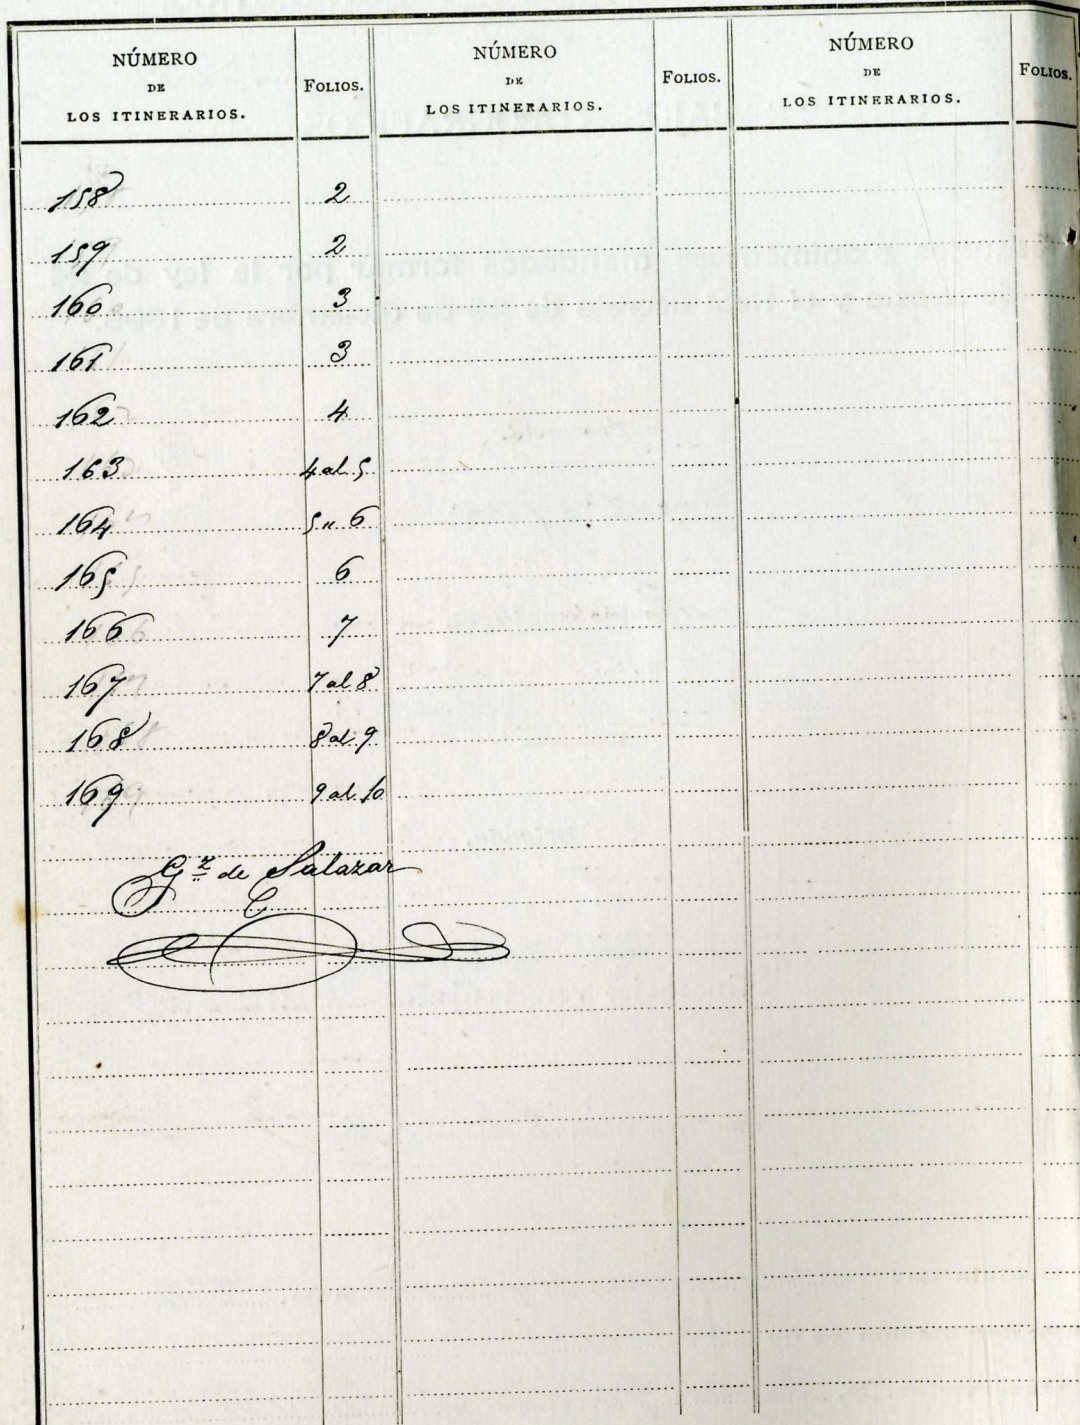 NÚMERO DE LOS ITINERARIOS. FOLIOS. NÚMERO DE LOS ITINERARIOS. FOLIOS. NÚMERO DE LOS ITINERARIOS. FOLIOS.
158 2
159 2
160 3
161 3
162 4
163 4 al 5
164 5 " 6
165 6
166 7
167 7 al 8
168 8 al 9
169 9 al 10
Gz de Salazar